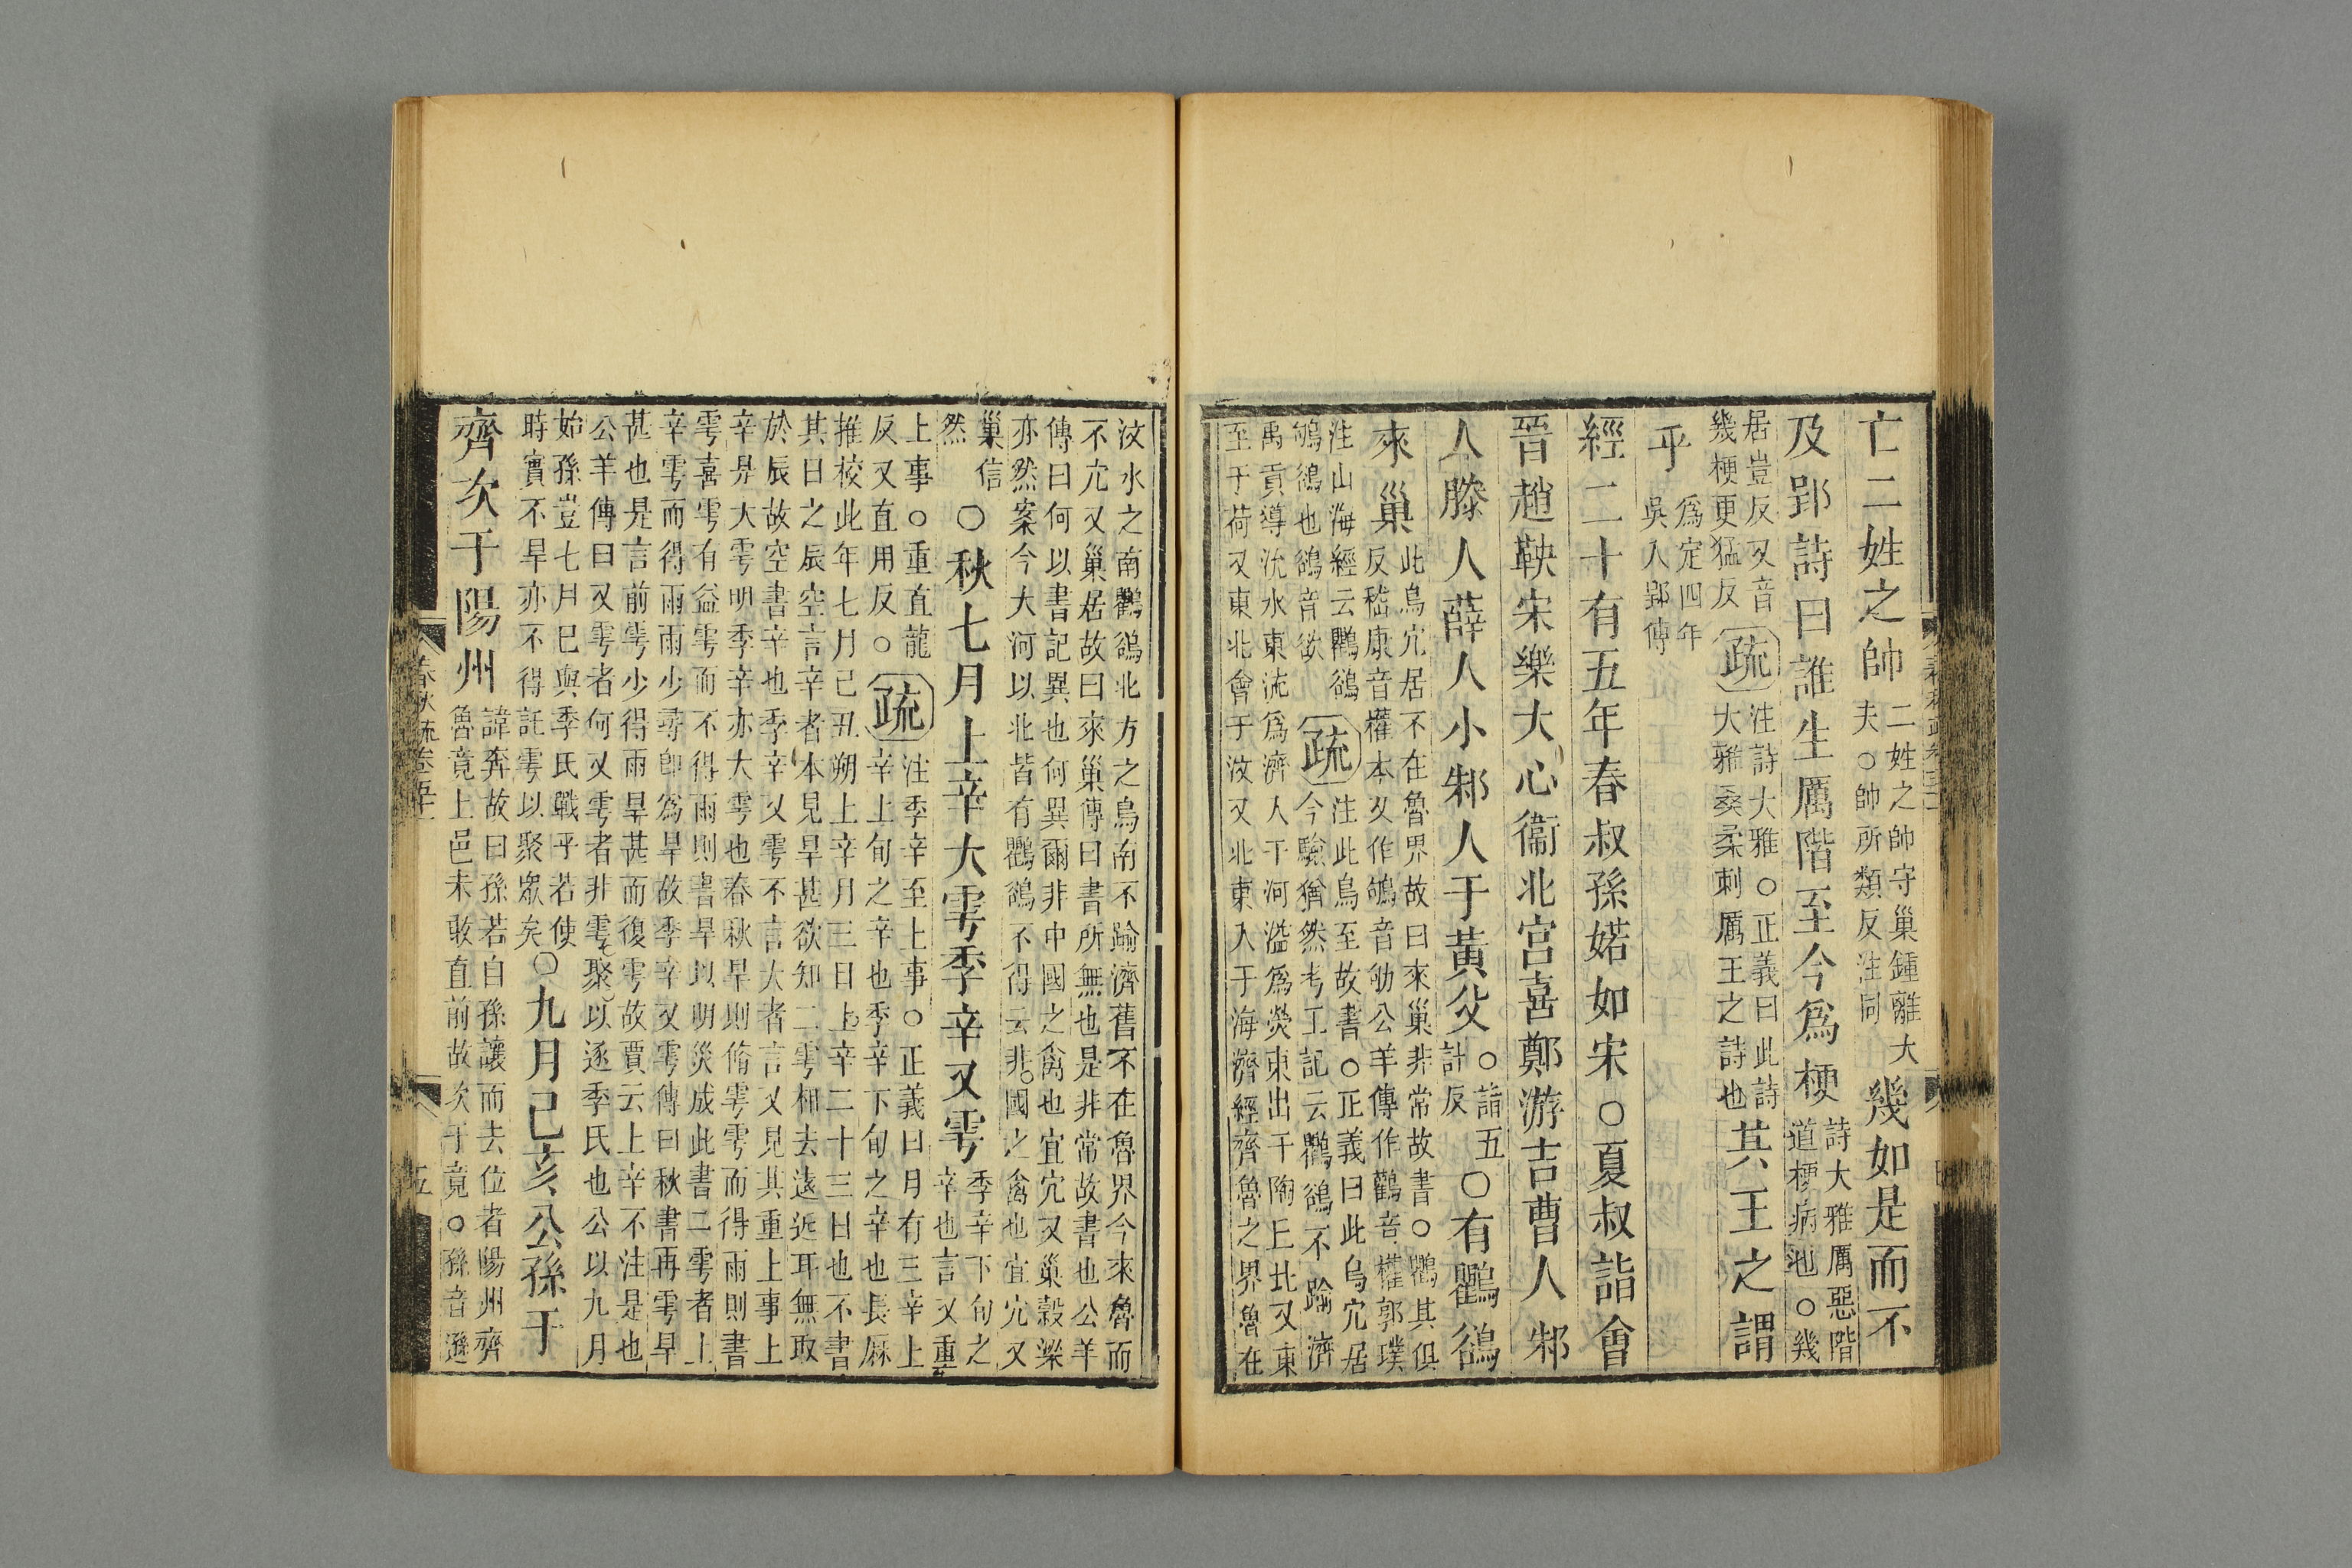 亡二姓之帥二姓之帥守巢鍾離大夫○帥所類反注同幾如是而不
及郢詩曰誰生厲階至今爲梗詩大雅厲惡階道梗病也○幾
居豈反又音幾梗更猛反疏注詩大雅○正義曰此詩大雅桑柔刺厲王之詩也其王之謂
乎爲定四年吳入郢傳
經二十有五年春叔孫婼如宋○夏叔詣會
晉趙鞅宋樂大心衞北宮喜鄭游吉曹人邾
人滕人薛人小邾人于黃父○詣五計反○有鸜鵒
來巢此鳥穴居不在魯界故曰來巢非常故書○鸜其俱反嵇康音權本又作鴝音劬公羊傳作鸛音權郭璞
注山海經云鸜鵒鴝鵒也鵒音欲疏注此鳥至故書○正義曰此鳥穴居今驗猶然考工記云鸜鵒不踰濟
禹貢導沇水東流爲濟入于河溢爲熒東出于陶丘北又東至于荷又東北會于汶又北東入于海濟經齊魯之界魯在
汶水之南鸜鵒北方之鳥南不踰濟舊不在魯界今來魯而不穴又巢居故曰來巢傳曰書所無也是非常故書也公羊
傳曰何以書記異也何異爾非中國之禽也宜穴又巢穀梁亦然案今大河以北皆有鸜鵒不得云非國之禽也宜穴又
巢信然○秋七月上辛大雩季辛又雩季辛下旬之辛也言又重
上事○重直龍反又直用反○疏注季辛至上事○正義曰月有三辛上辛上旬之辛也季辛下旬之辛也長厤
推校此年七月己丑朔上辛月三日上辛二十三日也不書其日之辰空言辛者本見旱甚欲知二雩相去遠近耳無取
於辰故空書辛也季辛又雩不言大者言又見其重上事上辛是大雩明季辛亦大雩也春秋旱則脩雩雩而得雨則書
雩喜雩有益雩而不得雨則書旱以明災成此書二雩者上辛雩而得雨雨少尋卽爲旱故季辛又雩傳曰秋書再雩旱
甚也是言前雩少得雨旱甚而復雩故賈云上辛不注是也公羊傳曰又雩者何又雩者非雩也聚以逐季氏也公以九月
始孫豈七月已與季氏戰乎若使時實不旱亦不得託雩以聚眾矣○九月己亥公孫于
齊次于陽州諱奔故曰孫若自孫讓而去位者陽州齊魯竟上邑未敢直前故次于竟○孫音遜
春秋疏卷五十一
五